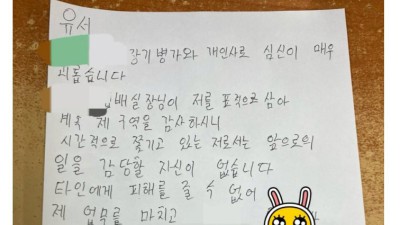 유서
장기 병가와 개인사로 심신이 매우
괴롭습니다
배실장님이 저를 표적으로 삼아
계속 제 구역을 감사하시니
시간적으로 쫓기고 있는 저로서는 앞으로의
일을 감당할 자신이 없습니다
타인에게 피해를 줄 수 없어
제 업무를 마치고